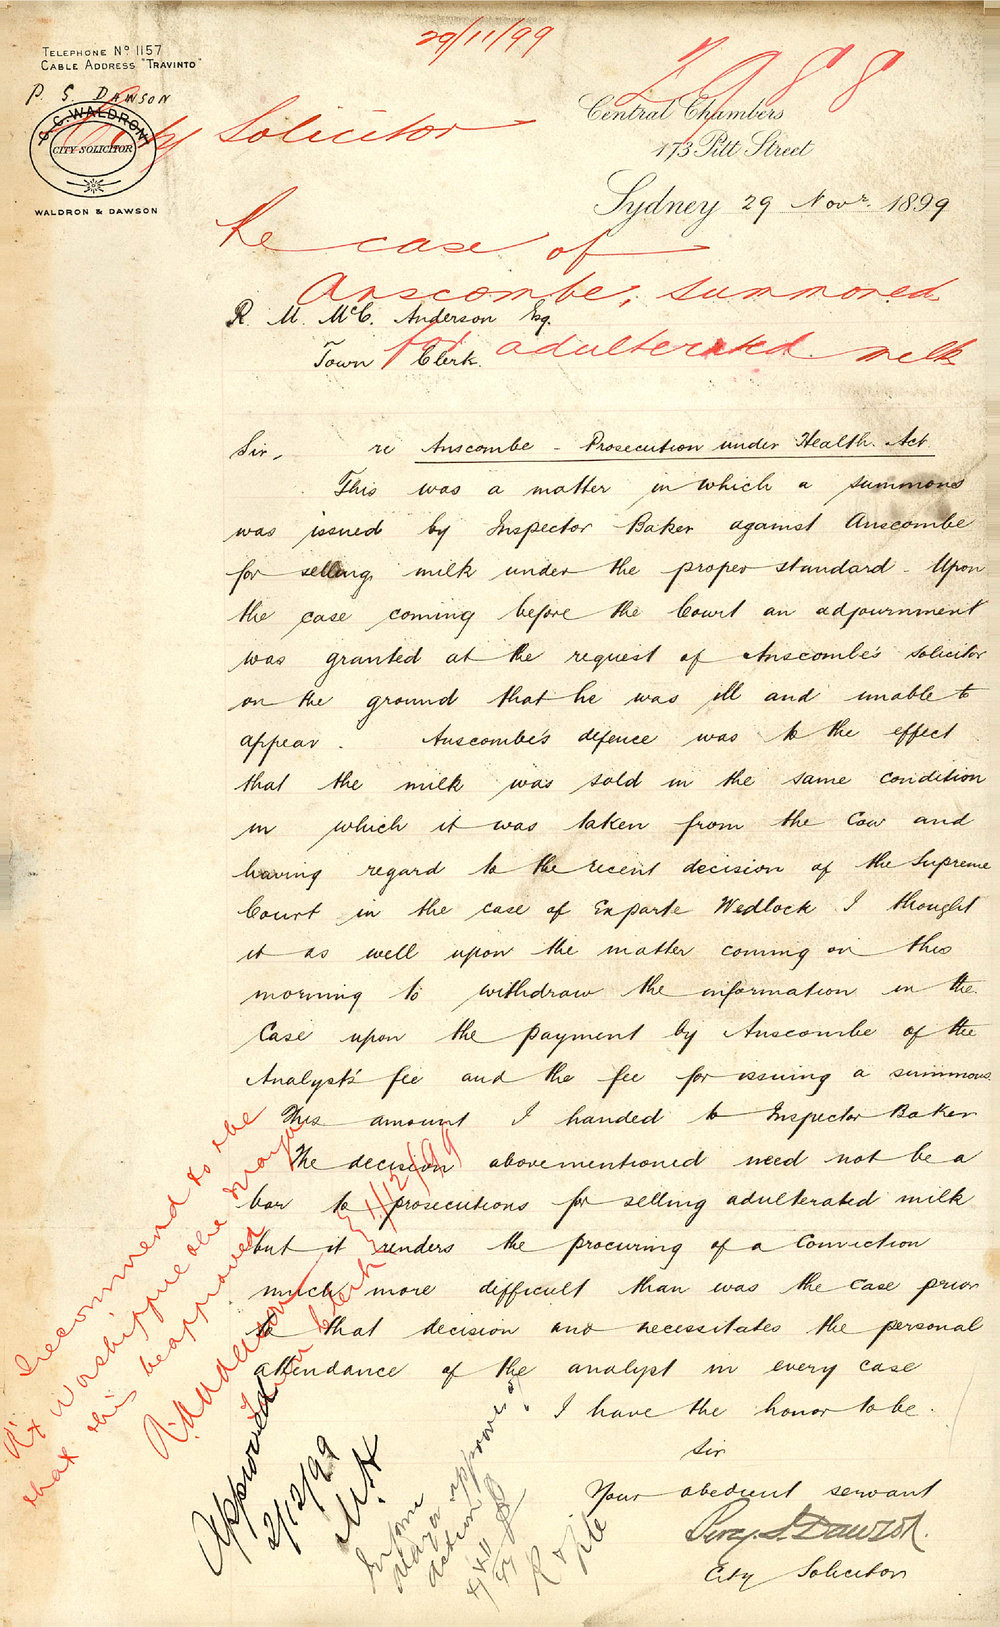 29/11/99
TELEPHONE Nº 1157
CABLE ADDRESS "TRAVINTO"
P. S. DAWSON
C. C. WALDRON
CITY SOLICITOR
WALDRON & DAWSON
City Solicitor
Central Chambers
173 Pitt Street
Sydney 29 Novr. 1899
Re case of
Anscombe, summoned
for adulterated milk
R. M. McC. Anderson Esq.
Town Clerk.
Sir, re Anscombe - Prosecution under Health Act
This was a matter in which a summons
was issued by Inspector Baker against Anscombe
for selling milk under the proper standard - Upon
the case coming before the Court an adjournment
was granted at the request of Anscombe's solicitor
on the ground that he was ill and unable to
appear. Anscombe's defence was to the effect
that the milk was sold in the same condition
in which it was taken from the Cow and
having regard to the recent decision of the Supreme
Court in the case of Ex parte Wedlock I thought
it as well upon the matter coming on this
morning to withdraw the information in the
Case upon the payment by Anscombe of the
Analyst's fee and the fee for issuing a summons
This amount I handed to Inspector Baker
The decision abovementioned need not be a
bar to prosecutions for selling adulterated milk
but it renders the procuring of a Conviction
much more difficult than was the case prior
to that decision and necessitates the personal
attendance of the analyst in every case
I have the honor to be.
Sir
Your obedient servant
Percy S. Dawson.
City Solicitor
I recommend to the
Rt Worshipful the Mayor
that this be approved
R M Anderson
Town Clerk
1/12/99
Approved
2/12/99
M. H
Inform
Mayor approves of
action
R & file